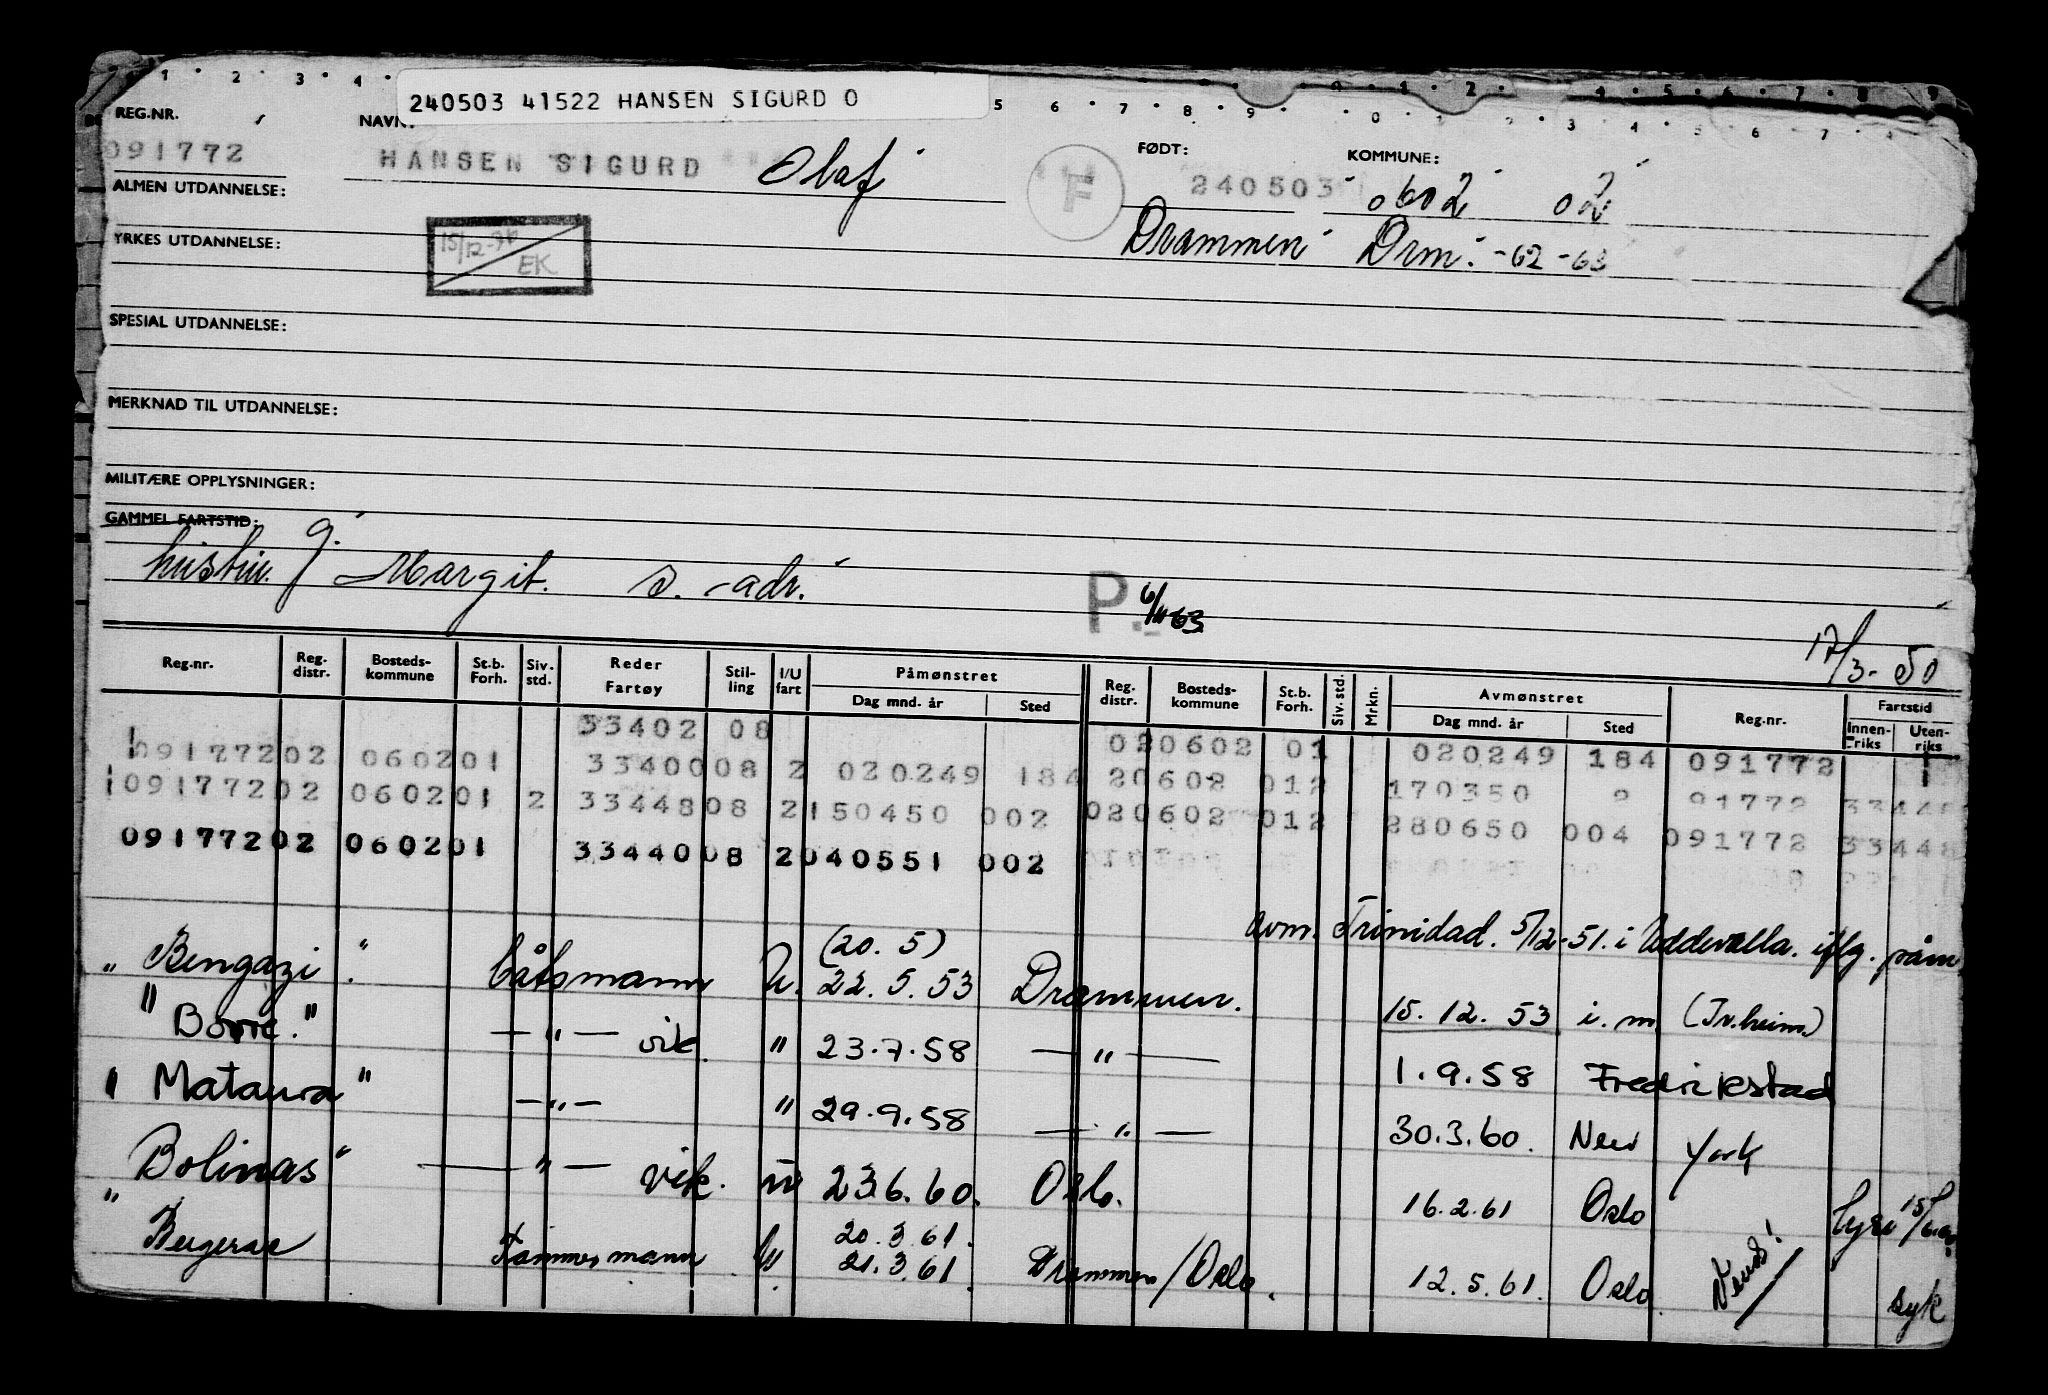 240503 41522 HANSEN SIGURD O
REG.NR. NAVN: FØDT: KOMMUNE:
091772 HANSEN SIGURD Olaf F 240503 0602 02
ALMEN UTDANNELSE: Drammen Drm. -62 -63
YRKES UTDANNELSE: 15/12- EK
SPESIAL UTDANNELSE:
MERKNAD TIL UTDANNELSE:
MILITÆRE OPPLYSNINGER:
GAMMEL FARTSTID:
hustru Margit. s. adr. P. 6/11 63
17/3-50
Reg.nr. Reg. distr. Bosteds-kommune St.b. Forh. Siv. std. Reder Fartøy Stilling I/U fart Påmønstret Dag mnd. år Sted Reg. distr. Bosteds-kommune St.b. Forh. Siv. std. Mrkn. Avmønstret Dag mnd. år Sted Reg.nr. Fartstid Innen-riks Uten-riks
33402 08 020602 01 020249 184 091772
091772 02 0602 01 33400 08 2 020249 184 20602 012 170350 2 91772
091772 02 0602 01 2 33448 08 2 150450 002 020602 012 280650 004 091772 33448
091772 02 0602 01 33440 08 2 040551 002
avm. Trinidad. 5/12-51. i Uddevalla. iflg.
(20. 5)
" Bengazi " båtsmann U. 22. 5. 53 Drammen. 15. 12. 53 i. m (Tr.heim)
" Borre." — " — vik. " 23.7.58 — " — 1.9.58 Fredrikstad
" Mataura " — " — " 29.9.58 — " — 30.3.60. New York
Bolinas" — " — vik. 23.6.60. Oslo. 16.2.61 Oslo
20.3.61.
" Bergerac Tømmermann U 21.3.61. Drammen/Oslo. 12.5.61. Oslo. syk